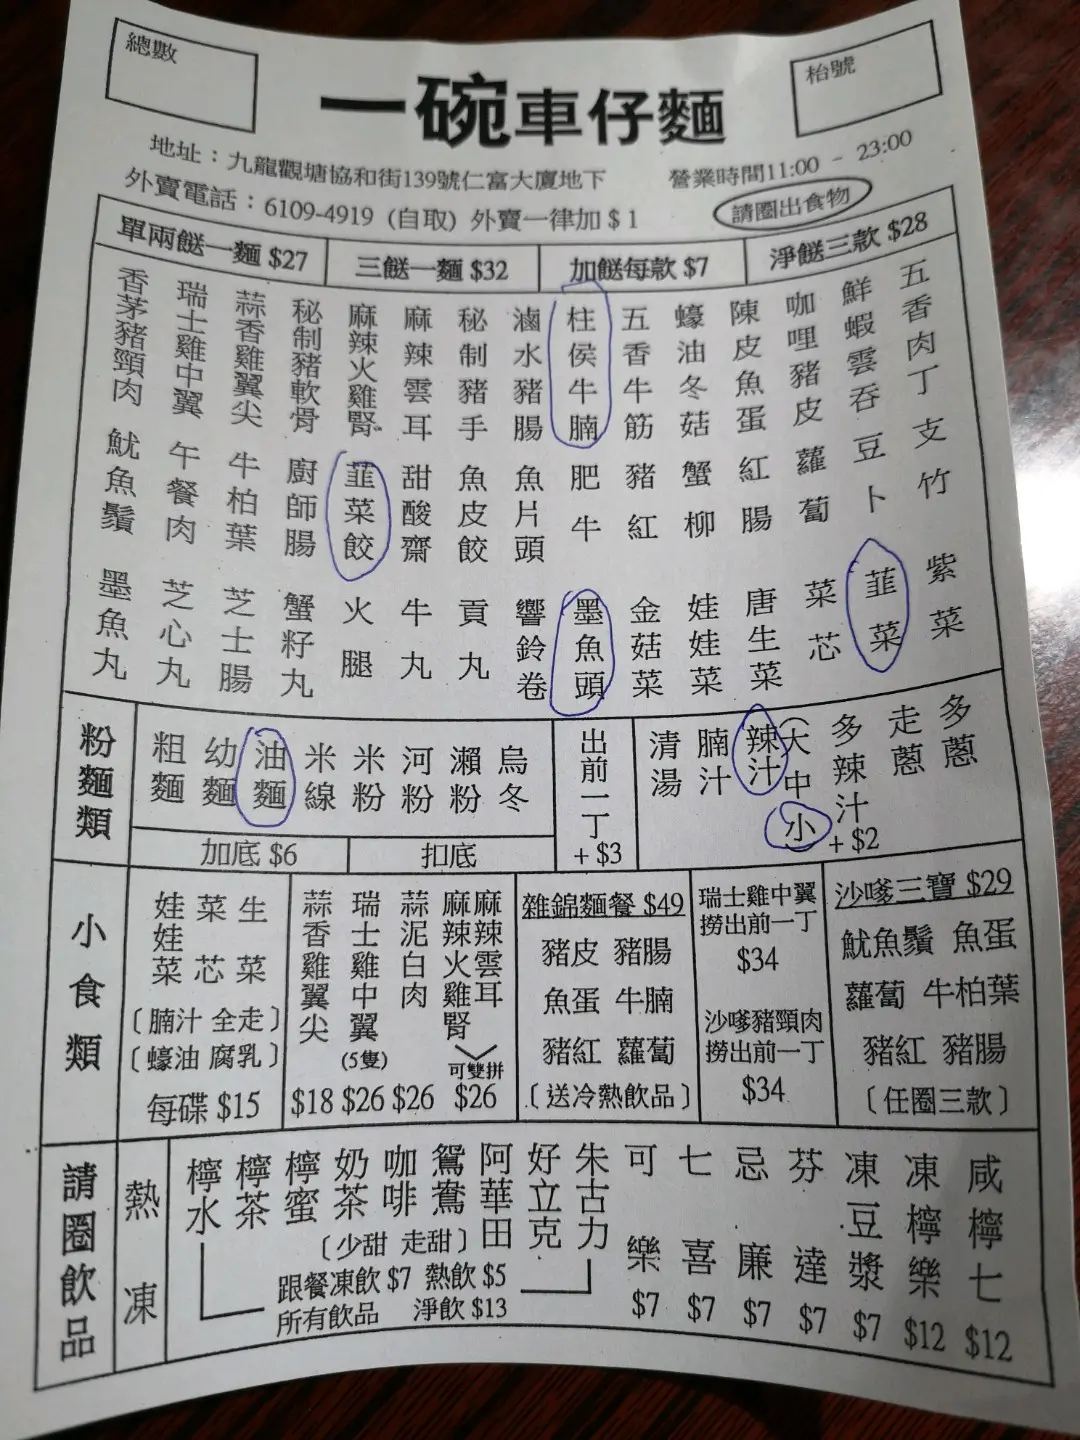 總數
枱號
一碗車仔麵
地址：九龍觀塘協和街139號仁富大廈地下 營業時間11:00 - 23:00
外賣電話：6109-4919 (自取) 外賣一律加 $ 1 請圈出食物
單兩餸一麵 $27 三餸一麵 $32 加餸每款 $7 淨餸三款 $28
香茅豬頸肉 瑞士雞中翼 蒜香雞翼尖 秘制豬軟骨 麻辣火雞腎 麻辣雲耳 秘制豬手 滷水豬腸 柱侯牛腩 五香牛筋 蠔油冬菇 陳皮魚蛋 咖哩豬皮 鮮蝦雲吞 五香肉丁
魷魚鬚 午餐肉 牛柏葉 廚師腸 韮菜餃 甜酸齋 魚皮餃 魚片頭 肥牛 豬紅 蟹柳 紅腸 蘿蔔 豆卜 支竹
墨魚丸 芝心丸 芝士腸 蟹籽丸 火腿 牛丸 貢丸 響鈴卷 墨魚頭 金菇菜 娃娃菜 唐生菜 菜芯 韮菜 紫菜
粉麵類
粗麵 幼麵 油麵 米線 米粉 河粉 瀨粉 烏冬
加底 $6 扣底
出前一丁 + $3
清湯 腩汁 辣汁 (大中小) 多辣汁 + $2 走蔥 多蔥
小食類
娃娃菜 菜芯 生菜
〔腩汁 全走〕
〔蠔油 腐乳〕
每碟 $15
蒜香雞翼尖 瑞士雞中翼 蒜泥白肉 麻辣火雞腎 麻辣雲耳
(5隻) 可雙拼
$18 $26 $26 $26
雜錦麵餐 $49
豬皮 豬腸
魚蛋 牛腩
豬紅 蘿蔔
〔送冷熱飲品〕
瑞士雞中翼
撈出前一丁
$34
沙嗲豬頸肉
撈出前一丁
$34
沙嗲三寶 $29
魷魚鬚 魚蛋
蘿蔔 牛柏葉
豬紅 豬腸
〔任圈三款〕
請圈飲品
熱 凍
檸水 檸茶 檸蜜 奶茶 咖啡 鴛鴦 阿華田 好立克 朱古力
〔少甜 走甜〕
跟餐凍飲 $7 熱飲 $5
所有飲品 淨飲 $13
可樂 七喜 忌廉 芬達 凍豆漿 凍檸樂 咸檸七
$7 $7 $7 $7 $7 $12 $12